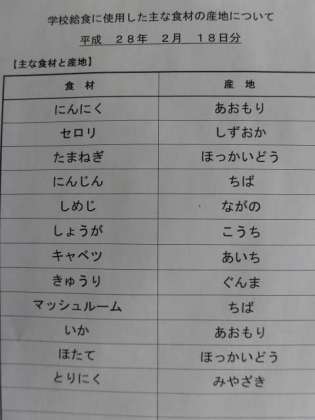 学校給食に使用した主な食材の産地について
平成 28年 2月 18日分
【主な食材と産地】
食 材 産 地
にんにく あおもり
セロリ しずおか
たまねぎ ほっかいどう
にんじん ちば
しめじ ながの
しょうが こうち
キャベツ あいち
きゅうり ぐんま
マッシュルーム ちば
いか あおもり
ほたて ほっかいどう
とりにく みやざき